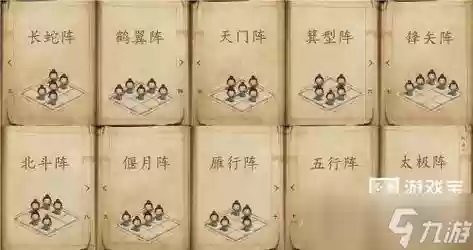 长蛇阵
鹤翼阵
天门阵
箕型阵
锋矢阵
北斗阵
偃月阵
雁行阵
五行阵
太极阵
游戏宝
九游